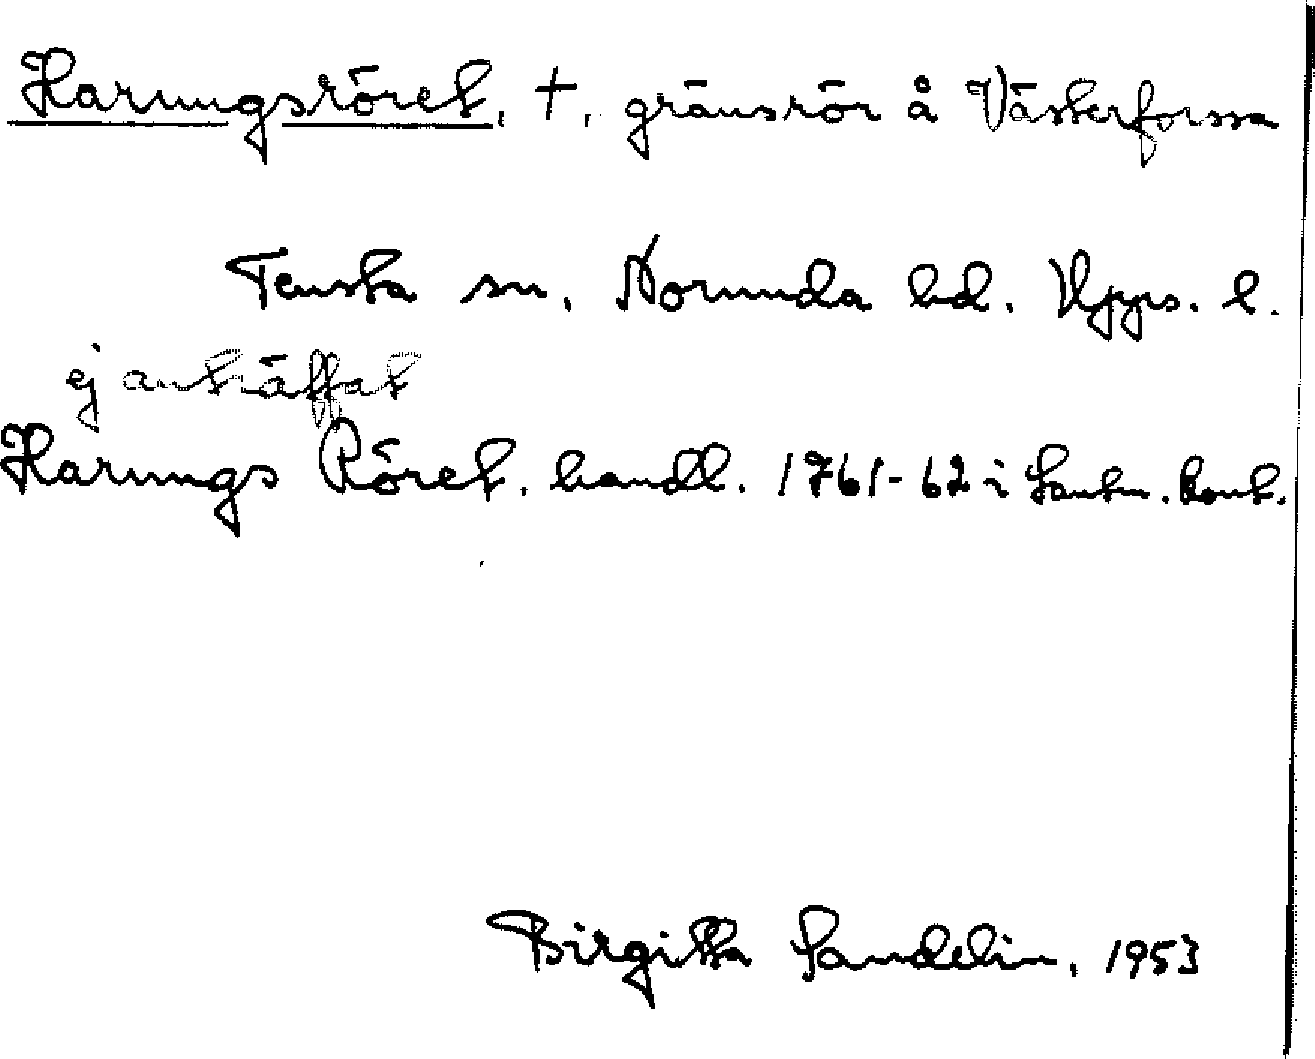 Harungsröret, †, gränsrör å Västerforssa
Tensta sn, Norunda hd. Upps. l.
ej anträffat
Harungs Röret. handl. 1761-62 i Lantm. kont.
Birgitta Sandelin, 1953